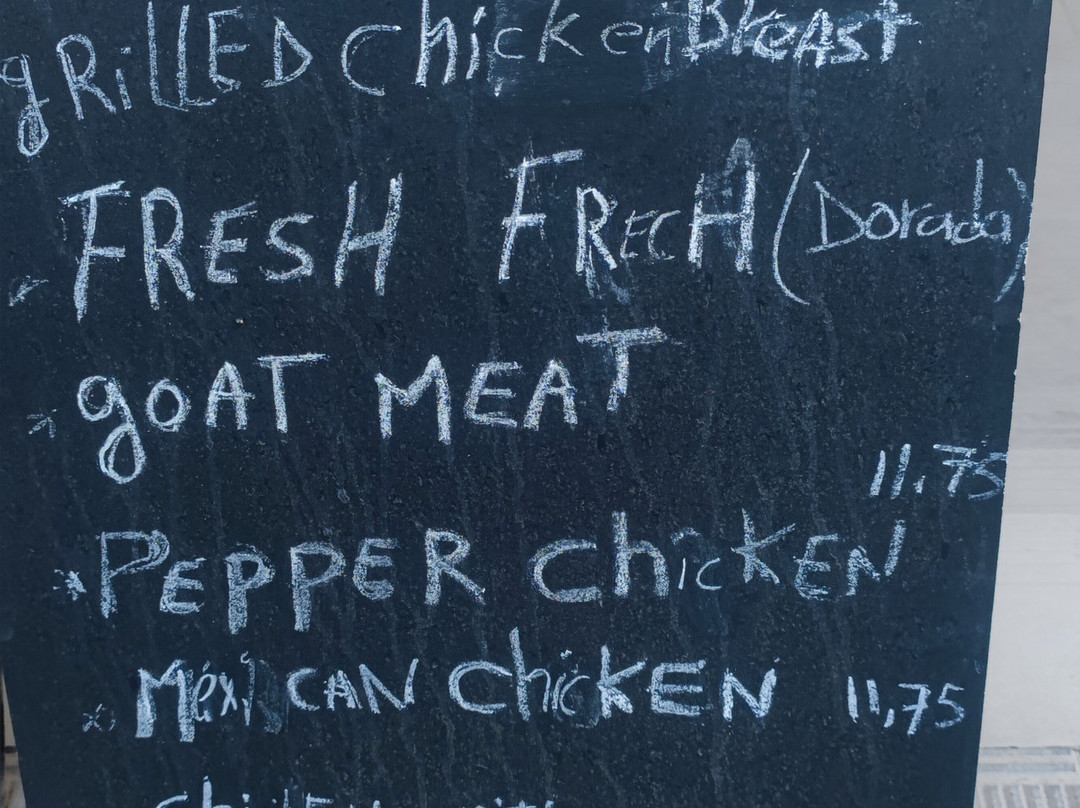 gRiLLED Chicken Breast
FRESH FRECH (Dorada)
goAT MEAT
11,75
* PEPPER ChicKEN
* MéxiCAN ChicKEN 11,75